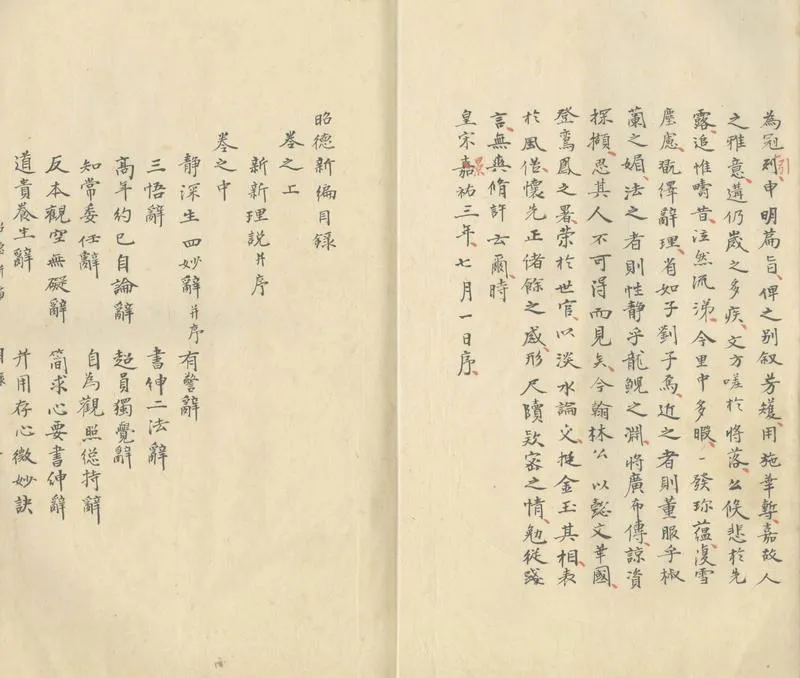 為冠列申明篇旨俾之別叙芳𫉬用施華塹嘉故人
之雅意遘仍歲之多疾文方嗟於將落公倏悲於先
露追惟疇昔泣然流涕今里中多暇一發珎蘊浚雪
塵慮翫繹辭理省如子劉子焉近之者則薫服乎椒
蘭之媚法之者則性靜乎龍鯢之淵將廣布傳諒資
探擷忍其人不可得而見矣今翰林公以懿文華國
登鸞鳳之署荣於世官以淡水論父挺金玉其相表
於風徃懷先正偖餘之感形尺牘欵密之情勉從踐
言無典脩許云爾時
皇宋嘉祐三年七月一日序
昭德新編目録
巻之上
新新理説并序
巻之中
靜深生四妙辭并序 有警辭
三悟辭 書紳二法辭
髙年約已自論辭 超員獨覺辭
知常委任辭 自為觀照總持辭
反本觀空無礙辭 簡求心要書伸辭
道貴養生辭 并用存心微妙訣